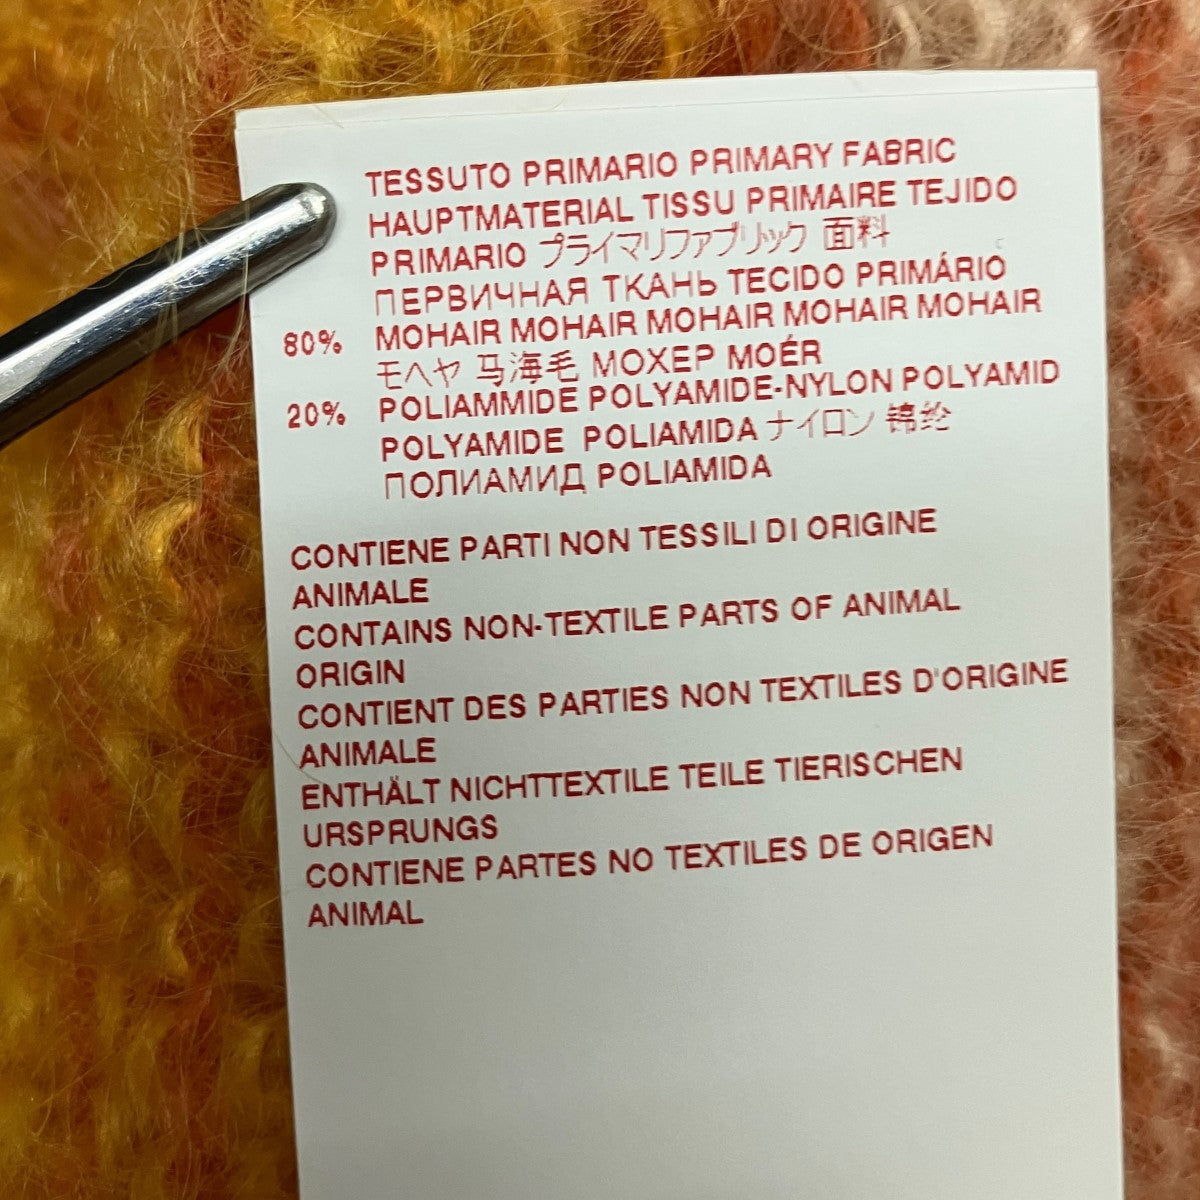 TESSUTO PRIMARIO PRIMARY FABRIC
HAUPTMATERIAL TISSU PRIMAIRE TEJIDO
PRIMARIO プライマリファブリック 面料
ПЕРВИЧНАЯ ТКАНЬ TECIDO PRIMÁRIO
80% MOHAIR MOHAIR MOHAIR MOHAIR MOHAIR
モヘヤ 马海毛 МОХЕР MOÉR
20% POLIAMMIDE POLYAMIDE-NYLON POLYAMID
POLYAMIDE POLIAMIDA ナイロン 锦纶
ПОЛИАМИД POLIAMIDA
CONTIENE PARTI NON TESSILI DI ORIGINE
ANIMALE
CONTAINS NON-TEXTILE PARTS OF ANIMAL
ORIGIN
CONTIENT DES PARTIES NON TEXTILES D'ORIGINE
ANIMALE
ENTHÄLT NICHTTEXTILE TEILE TIERISCHEN
URSPRUNGS
CONTIENE PARTES NO TEXTILES DE ORIGEN
ANIMAL